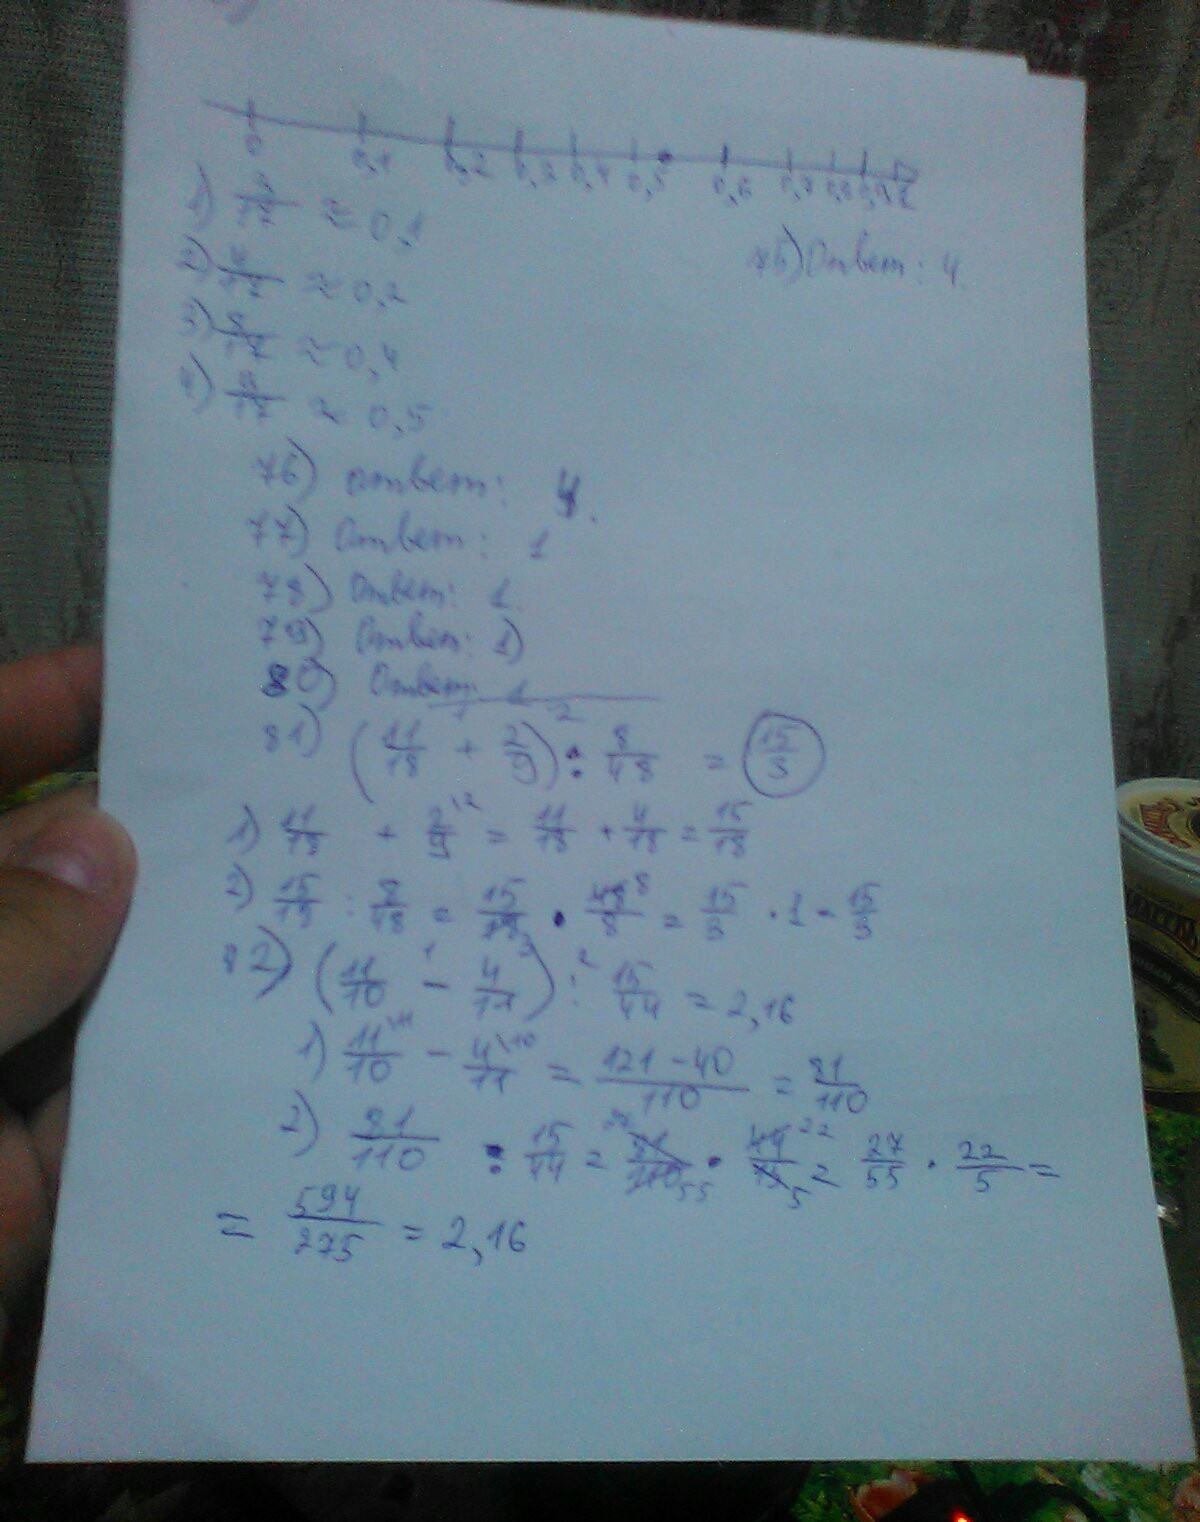 0 0,1 0,2 0,3 0,4 0,5 0,6 0,7 0,8 0,9 1
1) /17 ≈ 0,1
75) Ответ: 4.
2) 4/17 ≈ 0,2
3) 8/17 ≈ 0,4
4) /17 ≈ 0,5
76) ответ: 4.
77) Ответ: 1
78) Ответ: 1.
79) Ответ: 1)
80) Ответ: 1
1 2
81) (11/18 + 2/9) : 8/48 = 15/3
1) 11/18 + 2/9 \2 = 11/18 + 4/18 = 15/18
2) 15/18 : 8/48 = 15/18 · 48/8 = 15/3 · 1 = 15/3
82) (11/10 - 4/11) : 15/44 = 2,16
1) 11/10 \11 - 4/11 \10 = 121-40/110 = 81/110
2) 81/110 : 15/44 = 81/110 55 · 44/15 22 5 = 27/55 · 22/5 =
= 594/275 = 2,16